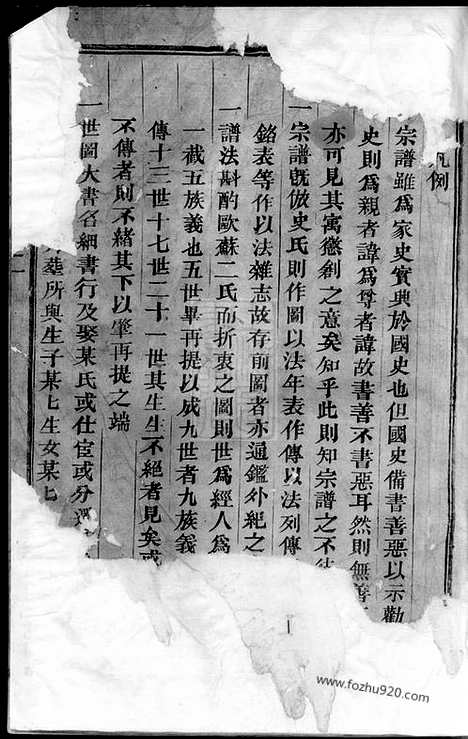 凡例
宗譜雖爲家史實與於國史也但國史備書善惡以示勸
史則爲親者諱爲尊者諱故書善不書惡耳然則無善
亦可見其寓懲創之意矣知乎此則知宗譜之不
一宗譜既倣史氏則作圖以法年表作傳以法列傳
銘表等作以法雜志故存前圖者亦通鑑外紀之
一譜法斟酌歐蘇二氏而折衷之圖則世爲經人爲
一截五族義也五世畢再提以成九世者九族義
傳十三世十七世二十一世其生生不絕者見矣或
不傳者則不緒其下以肇再提之端
一世圖大書名細書行及娶某氏或仕宦或分遷
墓所與生子某七生女某七
www.fozhu920.com